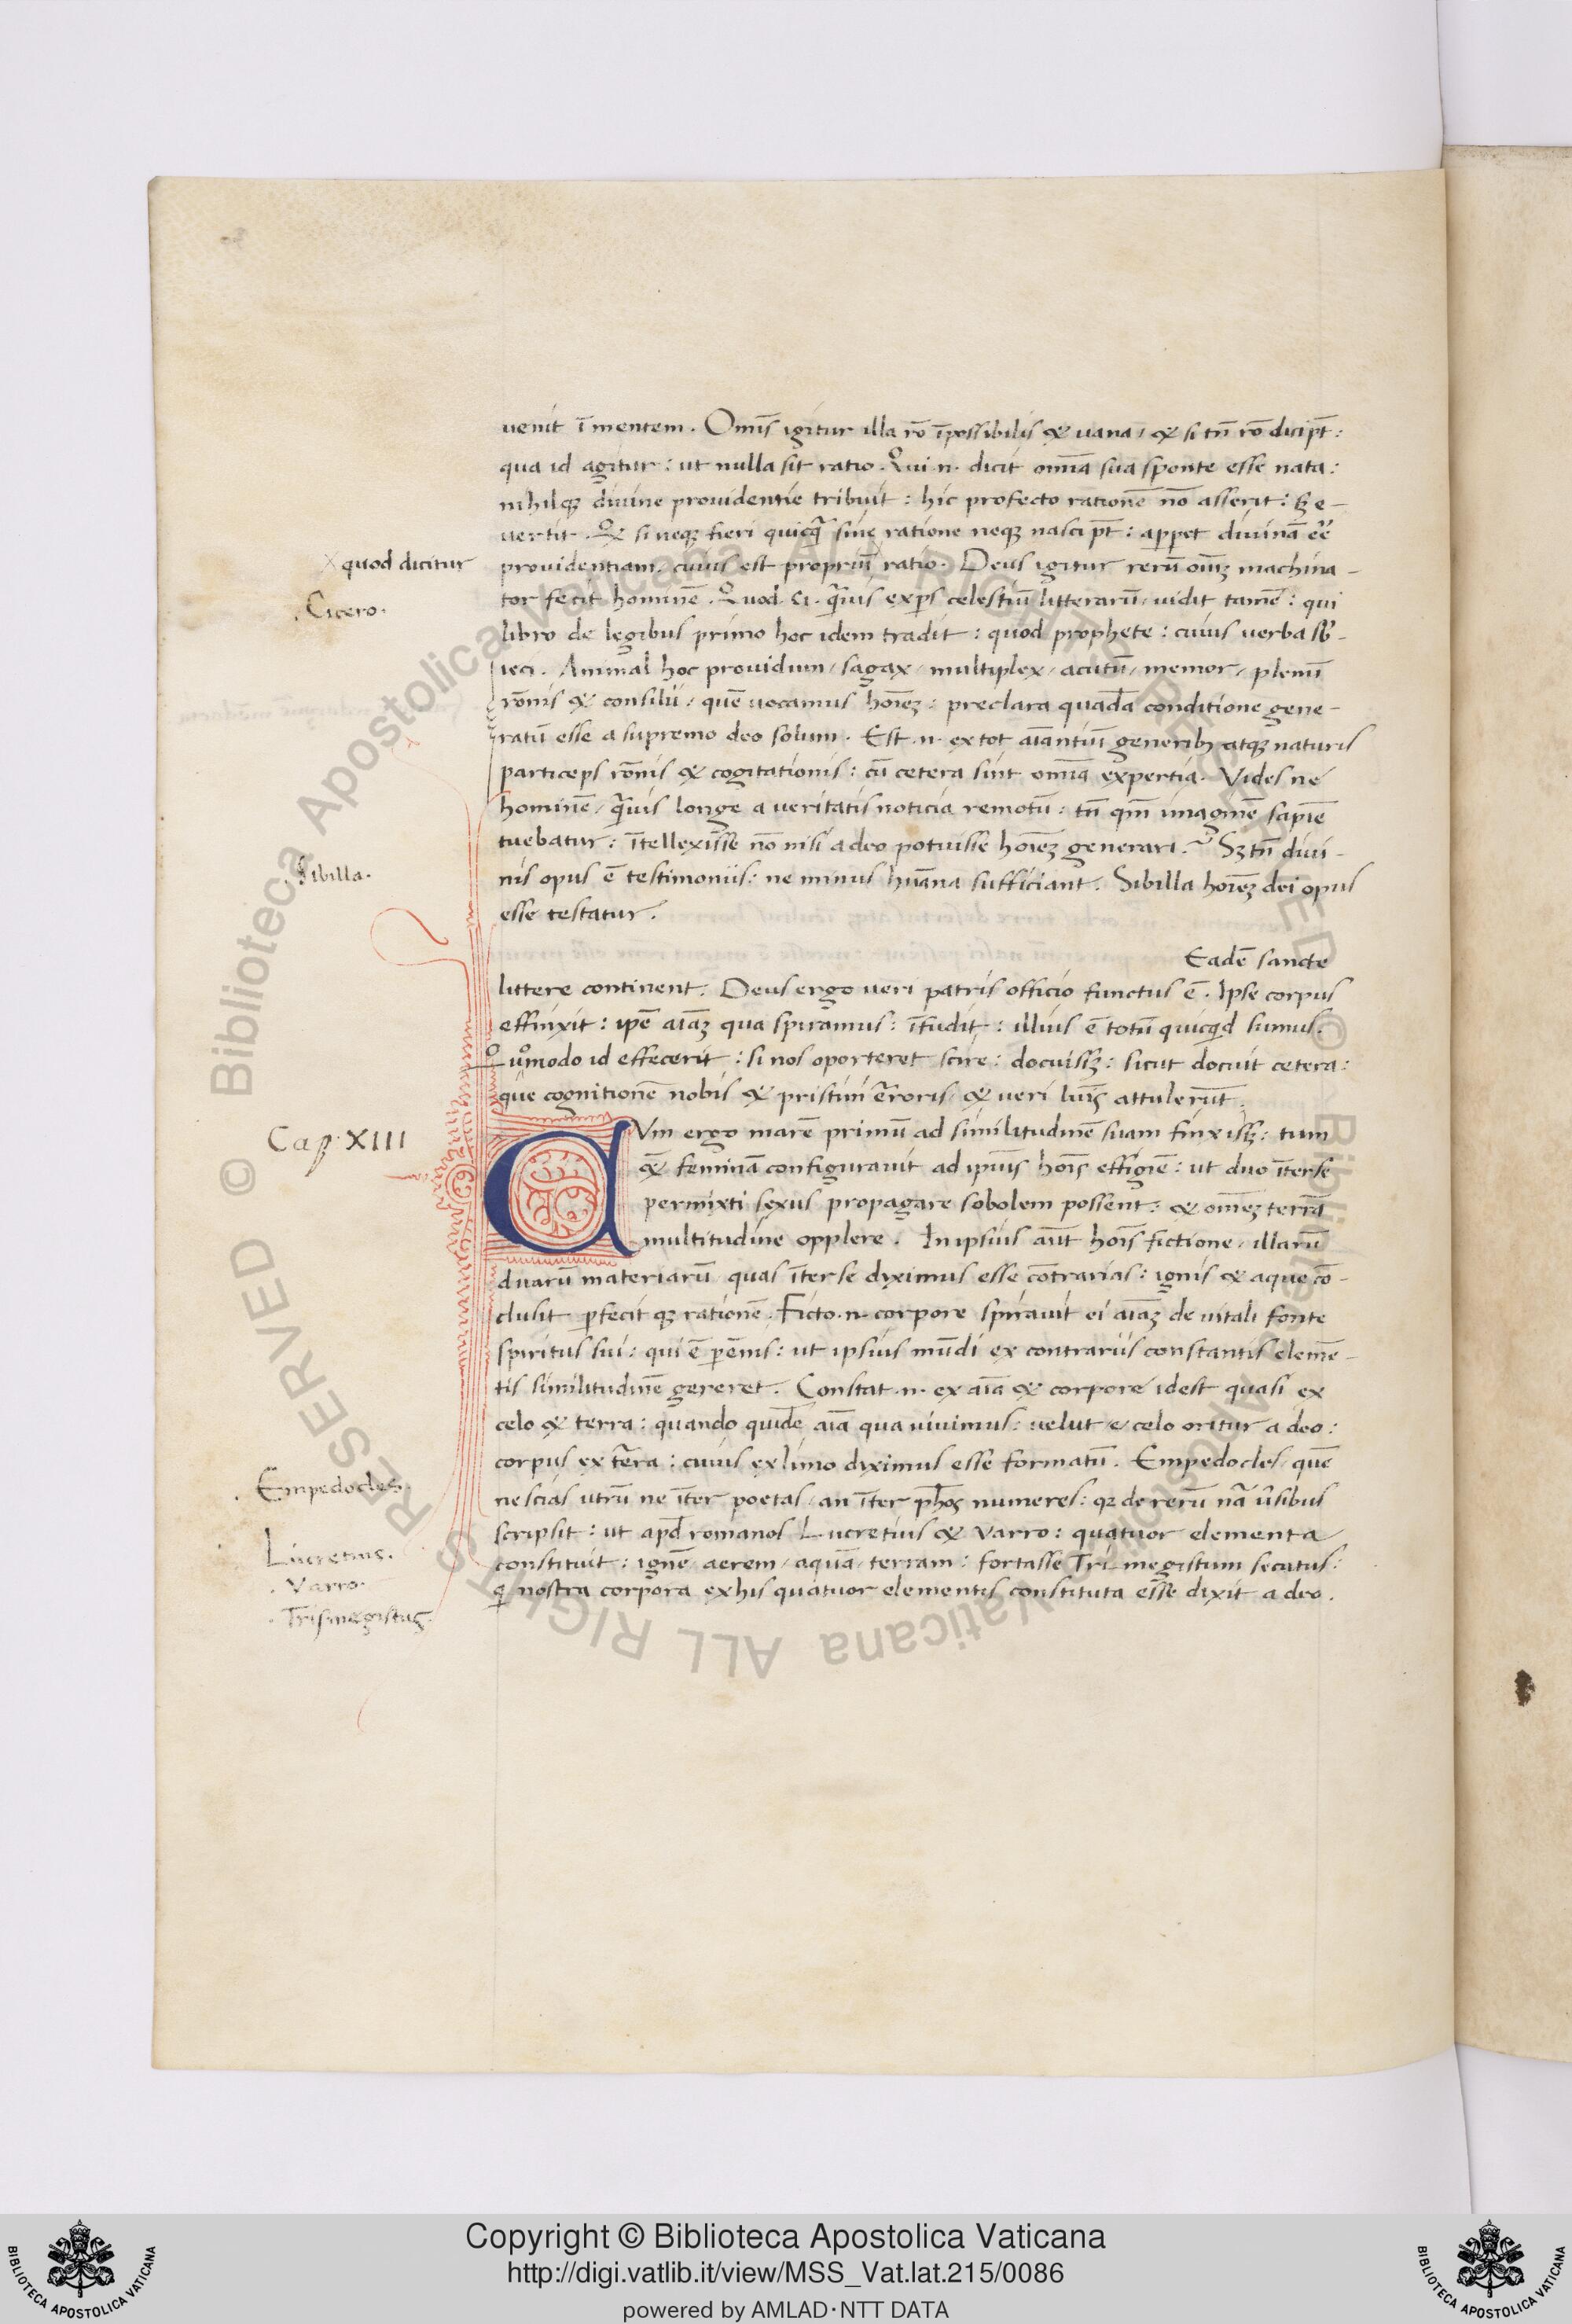 venit ī mentem. Omīs igitur illa rō īpossibilis & uana, & si tn̄ rō dici pt̄:
qua id agitur: ut nulla sit ratio. Qui .n. dicit omīa sua sponte esse nata:
nihilqȝ divine providentie tribuit: hic profecto rationē nō asserit: sȝ e-
vertit. Q si neqȝ fieri quicq̄ sine ratione neqȝ nasci pt̄: apꝑet divinā eē
× quod dicitur
providentiam, cuius est propriū ratio. Deus igitur rerū oīuȝ machina-
tor fecit hominē. Quod. Ci. q̄uis expˢ celestiū litterarū, vidit tamē: qui
.Cicero.
libro de legibus primo hoc idem tradit: quod prophete: cuius verba sb̄-
ieci. Animal hoc providum, sagax, multiplex, acutū, memor, plenū
rōnis & consilii, quē uocamus hoīeȝ: preclara quadā conditione gene-
ratū esse a supremo deo solum. Est .n. ex tot aīantiū generibȝ atqȝ naturis
particeps rōnis & cogitationis: cū cetera sint omīa expertia. Vides ne
hominē, q̄uis longe a veritatis noticia remotū: tn̄ qm̄ imaginē sapīe
tuebatur: ītellexisse nō nisi a deo potuisse hoīeȝ generari? Sȝ tn̄ divi-
.Sibilla.
nis opus ē testimoniis: ne minus huāna sufficiant. Sibilla hoīeȝ dei opus
esse testatur.
Eadē sancte
littere continent. Deus ergo ueri patris officio functus ē. Ipse corpus
effinxit: ipē aīaȝ qua spiramus: īfudit: illius ē totū quicqd sumus.
Quōmodo id effecerit: si nos oporteret scire: docuissȝ: sicut docuit cetera:
que cognitionē nobis & pristini ērroris, & veri luīs attulerūt.
Cap XIII
CVm ergo marē primū ad similitudinē suam finxissȝ: tum
& feminā configurauit ad ipīus hoīs effigiē: ut duo īter se
permixti sexus propagare sobolem possent: & omēȝ terrā
multitudine opplere. In ipsius aūt hoīs fictione, illarū
duarū materiarū quas īter se diximus esse cōtrarias: ignis & aque cō-
clusit ꝑfecit qȝ rationē. Ficto .n. corpore spirauit ei aīaȝ de uitali fonte
spiritus sui: qui ē ꝑēnis: ut ipsius mūdi ex contrariis constantis elemē-
tis similitudinē gereret. Constat .n. ex aīa & corpore idest quasi ex
celo & terra: quando quidē aīa qua uiuimus: uelut e celo oritur a deo:
corpus ex tēra: cuius ex limo diximus esse formatū. Empedocles, quē
.Empedocles.
nescias utrū ne īter poetas, an īter ph̄os numeres: qȝ de rerū nā ūsibus
Lucretius.
scripsit: ut apd̄ romanos Lucretius & Varro: quatuor elementa
.Varro.
constituit: ignē aerem, aquā, terram: fortasse Trimegistum secutus:
.Trismegistus.
q̄ nostra corpora ex his quatuor elementis constituta esse dixit a deo.
Copyright © Biblioteca Apostolica Vaticana
http://digi.vatlib.it/view/MSS_Vat.lat.215/0086
powered by AMLAD·NTT DATA
BIBLIOTECA APOSTOLICA VATICANA
BIBLIOTECA APOSTOLICA VATICANA
© Biblioteca Apostolica Vaticana ALL RIGHTS RESERVED
© Biblioteca Apostolica Vaticana ALL RIGHTS RESERVED